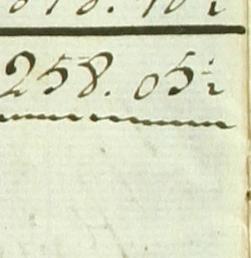 258. 05½